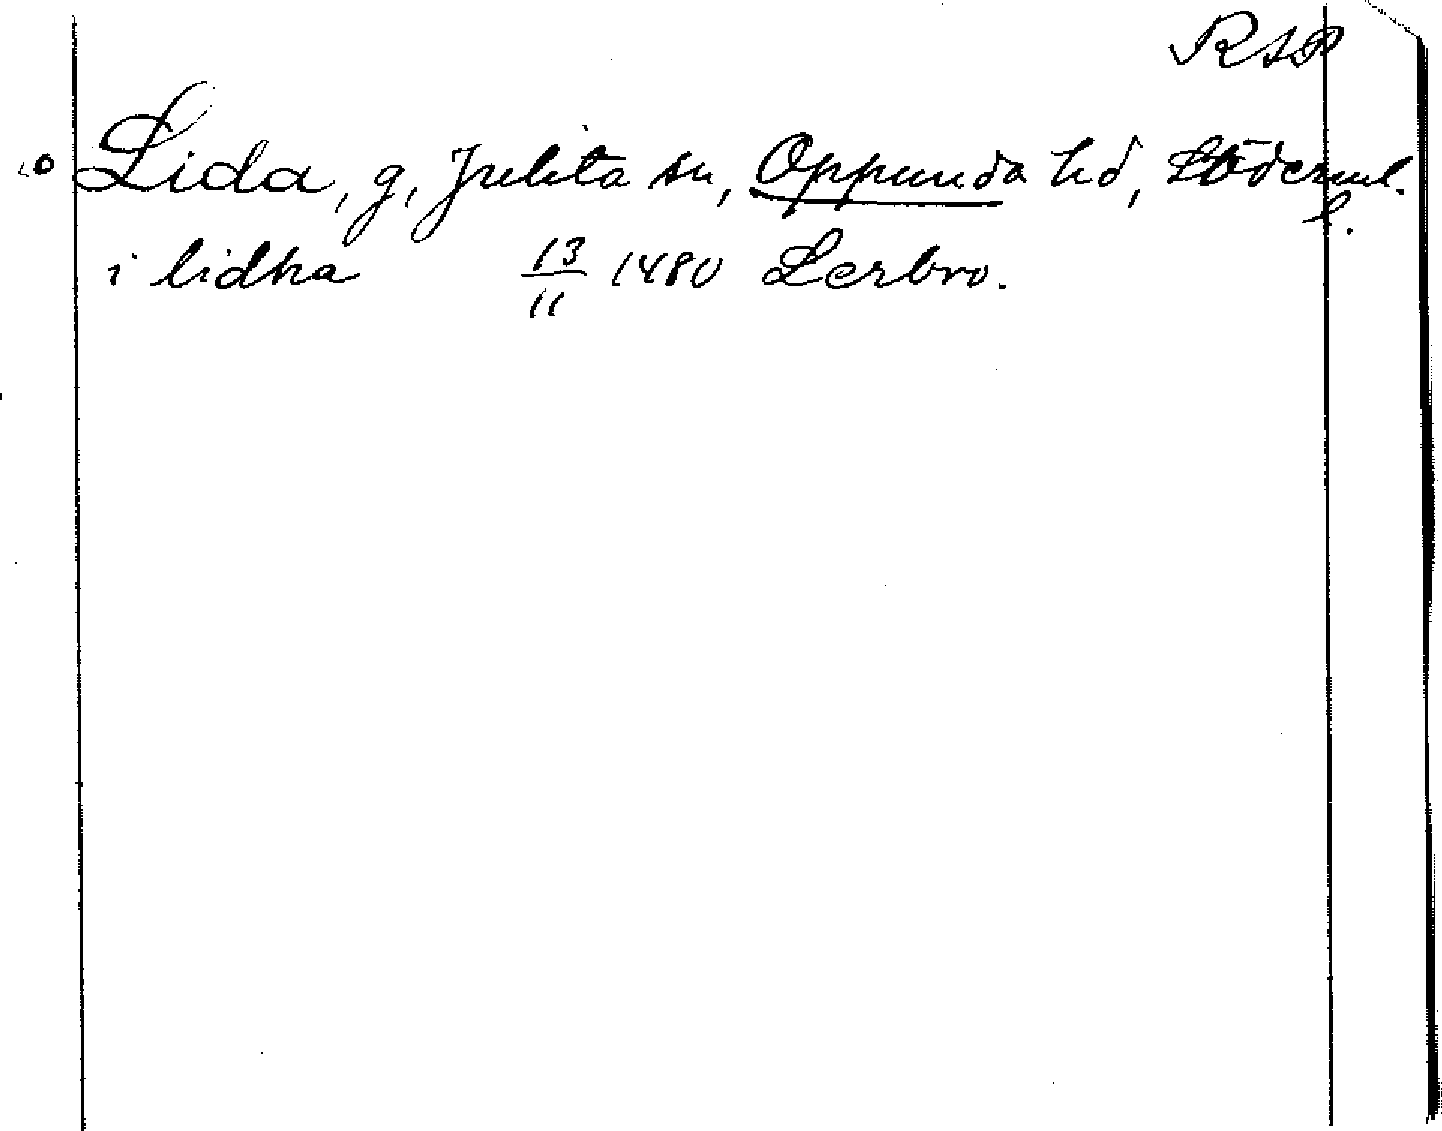 RAP
Lida, g, Julita sn, Oppunda hd, Söderml.
l.
i lidha 13/11 1480 Lerbro.